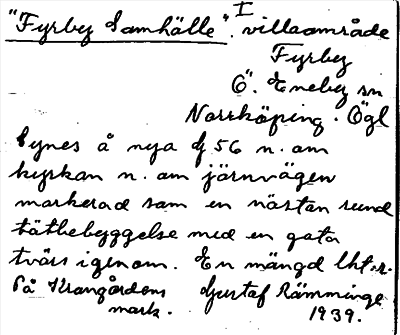 "Fyrby Samhälle". I villaområde
Fyrby
Ö. Eneby sn
Norrköping. Ögl
Synes å nya 56 n. om
kyrkan n. om järnvägen
markerad som en nästan rund
tätbebyggelse med en gata
tvärs igenom. En mängd lht:r.
På Krongårdens Gustaf Rämminge
mark. 1939.